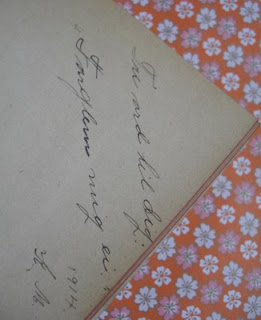 Tre ord til dig:
"Forglem mig ei."
1914